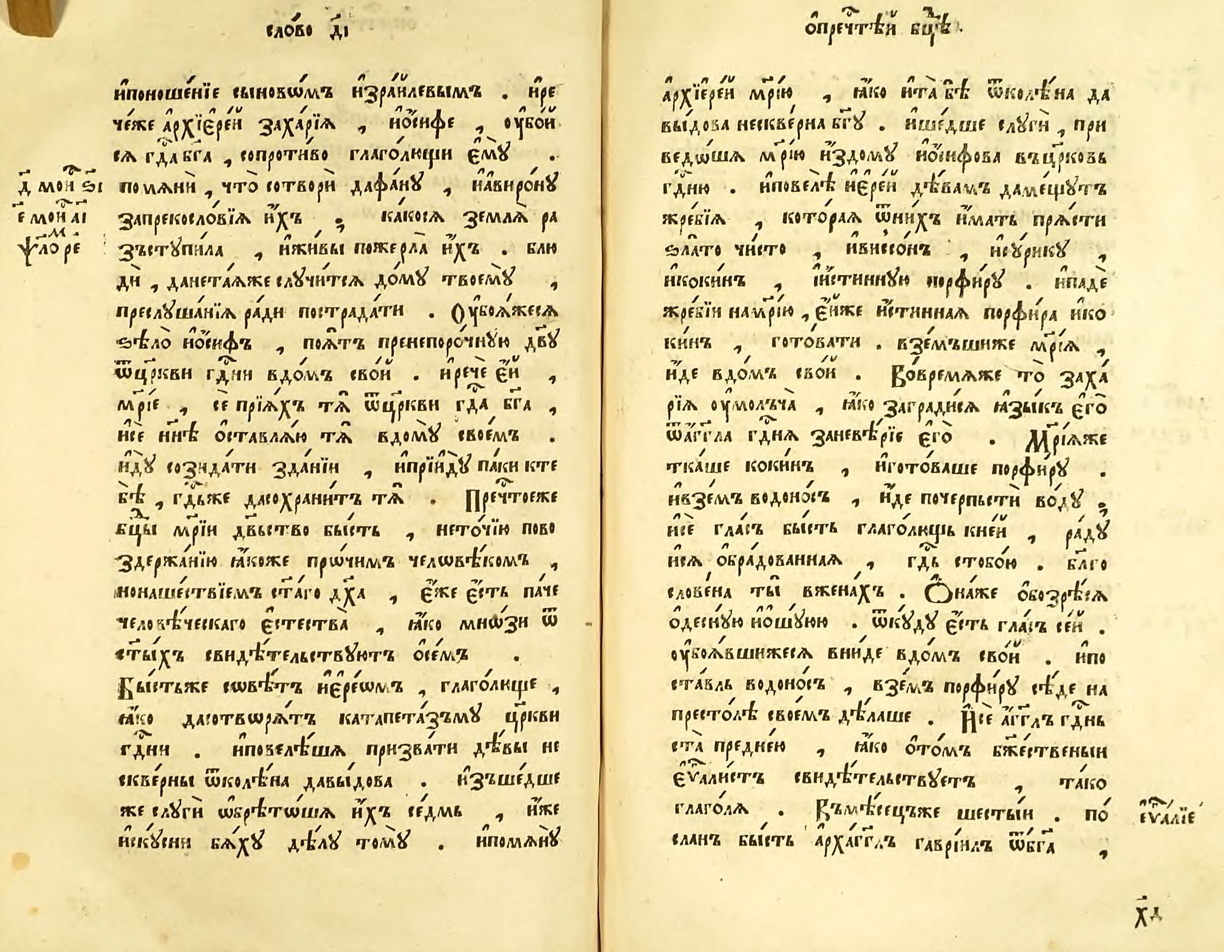 сло́во д҃і
и҆поноше́нїе сыновѡ́мъ и҆зра́илевымъ . и҆ре
че́же а҆рхїере́й заха́рїѧ , и҆ѡ́сифе , ᲂу҆бо́й
сѧ гд҇а бг҃а , сопроти́во глаго́лющи є҆мꙋ̀ .
д҃ мои ѕ҃і
помѧнѝ , что̀ сотворѝ дафа́нꙋ , и҆авиро́нꙋ
є҃ мои а҃і
запрекосло́вїѧ и҆́хъ ; ка́косѧ землѧ̀ ра
ѱ҃ло ре
зъстꙋпи́ла , и҆жи́вы пожерла̀ и҆́хъ . блю
дѝ , данета́ѧже слꙋчи́тсѧ до́мꙋ твоемꙋ̀ ,
преслꙋша́нїѧ ра́ди пострада́ти . Оу҆боѧ́жесѧ
ѕѣло̀ и҆ѡ́сифъ , поѧ́тъ пренепоро́чнꙋю дв҃ꙋ
ѿцр҃кви гд҇ни вдо́мъ сво́й . и҆речѐ є҆́й ,
мр҃і́е , сѐ прїѧ́хъ тѧ̀ ѿцр҃кви гд҇а бг҃а ,
и҆сѐ нн҃ѣ ѡ҆ставлѧ́ю тѧ̀ вдомꙋ̀ свое́мъ .
и҆дꙋ̀ созида́ти зда́нїи , и҆прїидꙋ̀ па́ки кте
бѣ̀ , гд҇ьже дасохрани́тъ тѧ̀ . Пречⷭ҇тоеже
бц҃ы мр҃і́и дв҃ьство бы́сть , нето́чїю пово
здержа́нїю ꙗ҆́коже прѡ́чимъ человѣ́комъ ,
нонаше́ствїемъ ст҃а́го дх҃а , є҆́же є҆́сть па́че
человѣ́ческаго є҆стества̀ , ꙗ҆́ко мно́зи ѿ
ст҃ы́хъ свидѣ́тельствꙋютъ ѡ҆се́мъ .
Бы́стьже совѣ́тъ и҆ере́ѡмъ , глаго́люще ,
ꙗ҆́ко дасотворѧ́тъ катапета́зъмꙋ цр҃кви
гд҇ни . и҆повелѣ́шѧ призва́ти дѣ́вы не
скве́рны ѿколѣ́на давы́дова . и҆зъше́дше
же слꙋгѝ ѡ҆брѣто́шѧ и҆́хъ се́дмь , и҆́же
и҆скꙋ́сни бѧ́хꙋ дѣ́лꙋ томꙋ̀ . и҆помѧнꙋ̀
ѡ҆пречⷭ҇тѣй бц҃ѣ .
а҆рхїере́й мр҃і́ю , ꙗ҆́ко и҆та̀ бѣ̀ ѿколѣ́на да
вы́дова нескве́рна бг҃ꙋ . и҆ше́дше слꙋгѝ , при
ведо́шѧ мр҃і́ю и҆здо́мꙋ и҆ѡ́сифова въцр҃ковь
гд҇ню . и҆повелѣ̀ и҆ере́й дѣ́вамъ даме́щꙋтъ
жре́бїѧ , кото́раѧ ѿни́хъ и҆́мать прѧ́сти
ѕла́то чи́сто , и҆виссо́нъ , и҆сѵ́рикꙋ ,
и҆коки́нъ , и҆и́стиннꙋю порфи́рꙋ . и҆падѐ
жре́бїи намр҃і́ю , є҆́йже и҆́стиннаѧ порфи́ра и҆ко
ки́нъ , гото́вати . взе́мъшиже мр҃і́ѧ ,
и҆́де вдо́мъ сво́й . Вовре́мѧже то̀ заха́
рїѧ ᲂу҆молъча̀ , ꙗ҆́ко загради́сѧ ꙗ҆зы́къ є҆гѡ̀
ѿа҆́гг҃ла гд҇нѧ заневѣ́рїе є҆гѡ̀ . Мр҃і́ѧже
тка́ше коки́нъ , и҆гото́ваше порфи́рꙋ .
и҆взе́мъ водоно́съ , и҆́де поче́рпьсти во́дꙋ ,
и҆сѐ гла́съ бы́сть глаго́лющь кне́й , ра́дꙋ
и҆сѧ ѡ҆бра́дованнаѧ , гд҇ь стобо́ю . блг҃о
слове́на ты̀ вжена́хъ . Ѻ҆на́же ѡ҆бозрѣ́сѧ
ѻ҆деснꙋ́ю и҆ѻ҆шꙋ́юю . ѿкꙋ́дꙋ є҆́сть гла́съ се́й .
ᲂу҆боѧ́вшижесѧ вни́де вдо́мъ сво́й . и҆по
ста́вль водоно́съ , взе́мъ порфи́рꙋ сѣ́де на
престо́лѣ свое́мъ дѣ́лаше . И҆сѐ а҆́гг҃лъ гд҇нь
ста̀ преднє́ю , ꙗ҆́ко ѻ҆то́мъ бж҃е́ственыи
є҆ѵⷢ҇али́стъ свидѣ́тельствꙋетъ , та́ко
глаго́лѧ . Въмѣ́сецъже шесты́и . по́
є҆ѵⷢ҇а́лїе
сланъ бы́сть а҆рха́гг҃лъ гаврїи́лъ ѿбг҃а ,
х҃д